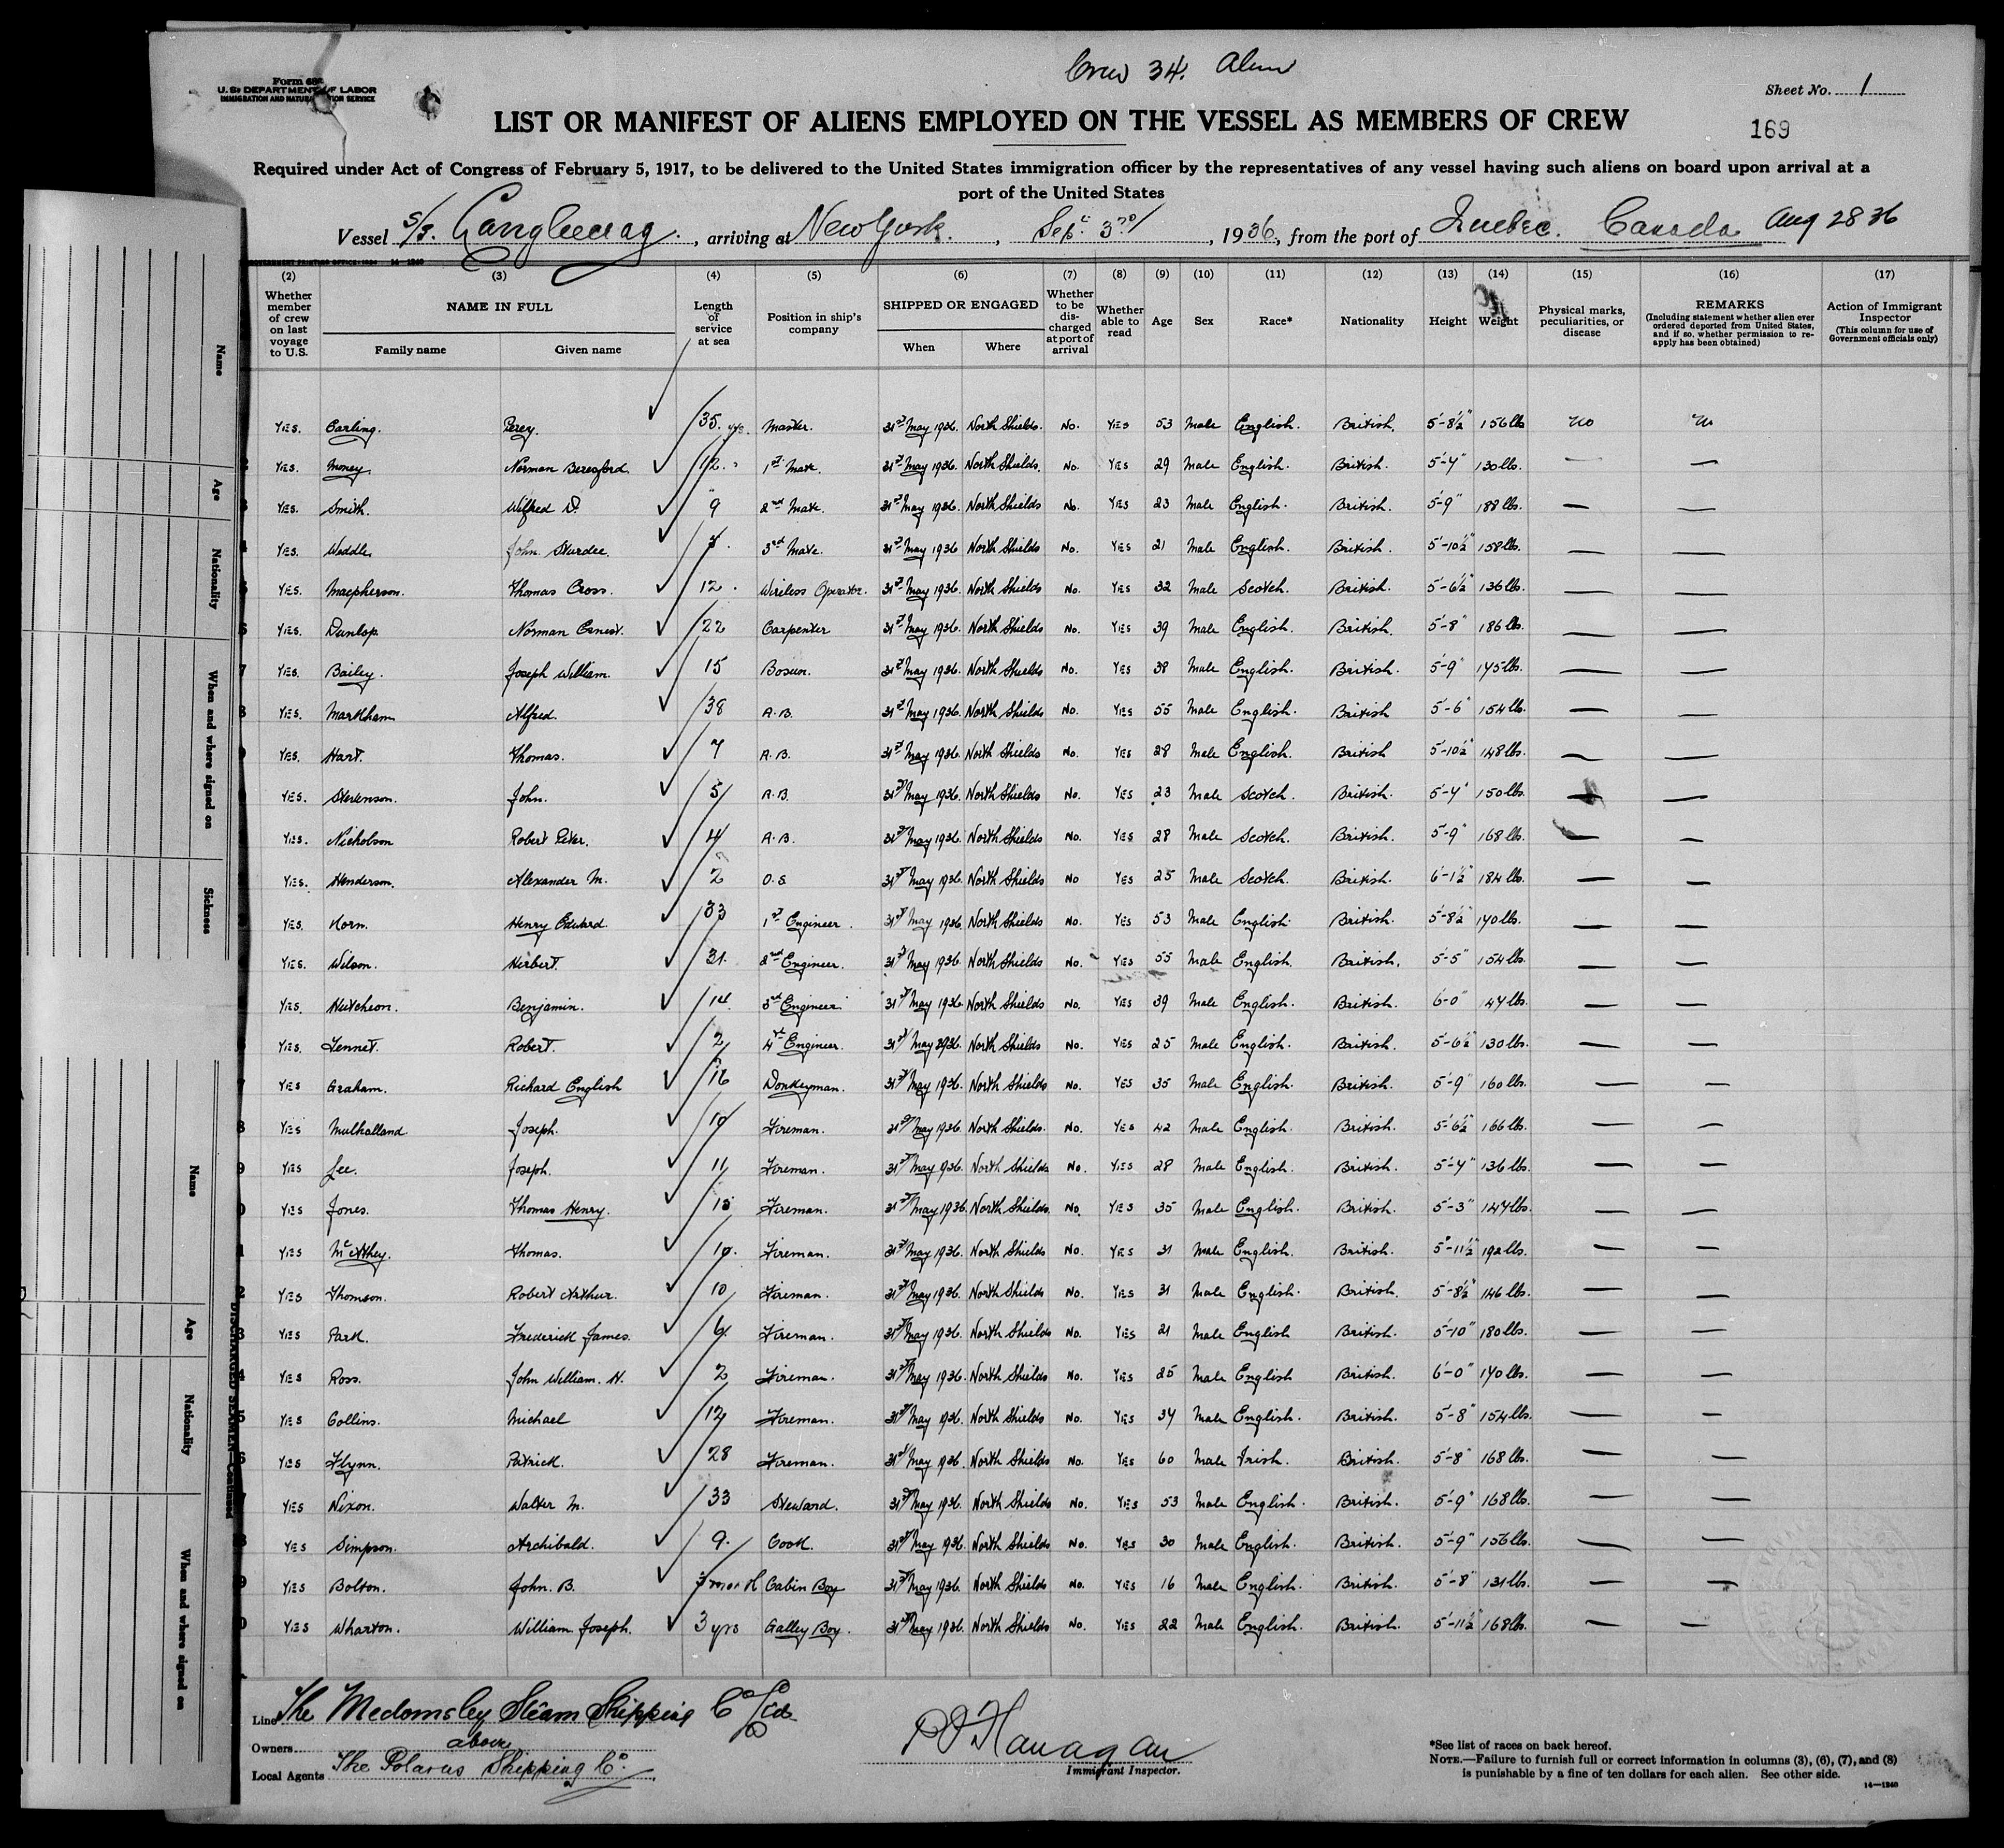 Crew 34. Alien
Form 689
U.S. DEPARTMENT OF LABOR
IMMIGRATION AND NATURALIZATION SERVICE
Sheet No. 1
LIST OR MANIFEST OF ALIENS EMPLOYED ON THE VESSEL AS MEMBERS OF CREW
169
Required under Act of Congress of February 5, 1917, to be delivered to the United States immigration officer by the representatives of any vessel having such aliens on board upon arrival at a
port of the United States
Vessel S/S. , arriving at New York. , Sep. 3rd, 1936, from the port of Quebec. Canada Aug 28 36
(2) (3) (4) (5) (6) (7) (8) (9) (10) (11) (12) (13) (14) (15) (16) (17)
Whether member of crew on last voyage to U.S. NAME IN FULL Family name Given name Length of service at sea Position in ship's company SHIPPED OR ENGAGED When Where Whether to be discharged at port of arrival Whether able to read Age Sex Race* Nationality Height Weight Physical marks, peculiarities, or disease REMARKS (Including statement whether alien ever ordered deported from United States, and if so, whether permission to re-apply has been obtained) Action of Immigrant Inspector (This column for use of Government officials only)
YES. Carling. Percy. 35. yrs. Master. 31st May 1936. North Shields. No. YES 53 Male English. British. 5'-8½" 156 lbs No No
YES. Money Norman Beresford. 12. " 1st Mate. 31st May 1936. North Shields. No. YES 29 Male English. British. 5'-4" 130 lbs. — —
YES. Smith. Wilfred D. 9 2nd Mate. 31st May 1936. North Shields No. YES 23 Male English. British. 5'-9" 188 lbs. — —
YES. Weddle. John Sturdee. 3rd Mate. 31st May 1936 North Shields No. YES 21 Male English. British. 5'-10½" 158 lbs. — —
YES. Macpherson. Thomas Cross. 12. Wireless Operator. 31st May 1936. North Shields No. YES 32 Male Scotch. British. 5'-6½" 136 lbs. — —
YES. Dunlop. Norman Ernest. 22 Carpenter 31st May 1936. North Shields No. YES 39 Male English. British. 5'-8" 186 lbs. — —
YES. Bailey. Joseph William. 15 Bosun. 31st May 1936. North Shields No. YES 38 Male English. British. 5'-9" 145 lbs. — —
YES. Markham Alfred. 38 A.B. 31st May 1936. North Shields No. YES 55 Male English. British 5'-6" 154 lbs. — —
YES. Hart. Thomas. 7 A.B. 31st May 1936. North Shields No. YES 28 Male English. British 5'-10½" 148 lbs. — —
YES. Stevenson. John. 5 A.B. 31st May 1936. North Shields No. YES 23 Male Scotch. British. 5'-4" 150 lbs. — —
YES. Nicholson Robert Peter. 4 A.B. 31st May 1936. North Shields No. YES 28 Male Scotch. British. 5'-9" 168 lbs. — —
YES. Henderson. Alexander M. 2 O.S. 31st May 1936. North Shields No YES 25 Male Scotch. British. 6'-1½" 184 lbs. — —
YES. Horn. Henry Edward. 33 1st Engineer. 31st May 1936. North Shields No. YES 53 Male English. British. 5'-8½" 140 lbs. — —
YES. Wilson. Herbert. 31. 2nd Engineer. 31st May 1936. North Shields No. YES 55 Male English. British. 5'-5" 154 lbs. — —
YES. Hutcheon. Benjamin. 14. 3rd Engineer 31st May 1936 North Shields No. YES 39 Male English. British. 6'-0" 147 lbs. — —
YES. Tennet. Robert. 2 4th Engineer. 31st May 1936. North Shields No. YES 25 Male English. British. 5'-6½" 130 lbs. — —
YES Graham. Richard English 16 Donkeyman. 31st May 1936. North Shields No. YES 35 Male English. British. 5'-9" 160 lbs. — —
YES Mulhalland Joseph. 10 Fireman. 31st May 1936. North Shields. No. YES 42 Male English. British. 5'-6½" 166 lbs. — —
YES Lee. Joseph. 11 Fireman. 31st May 1936. North Shields No. YES 28 Male English. British. 5'-4" 136 lbs. — —
YES Jones. Thomas Henry. 15 Fireman. 31st May 1936. North Shields No. YES 35 Male English. British. 5'-3" 147 lbs. — —
YES McAthey. Thomas. 10. Fireman. 31st May 1936. North Shields No. YES 31 Male English. British. 5'-11½" 192 lbs. — —
YES Thomson. Robert Arthur. 10 Fireman. 31st May 1936. North Shields No. YES 31 Male English. British. 5'-8½" 146 lbs. — —
YES Park. Frederick James. 6 Fireman. 31st May 1936. North Shields No. YES 21 Male English British. 5'-10" 180 lbs. — —
YES Ross. John William. H. 2 Fireman. 31st May 1936. North Shields No. YES 25 Male English British. 6'-0" 140 lbs. — —
YES Collins. Michael 12 Fireman. 31st May 1936. North Shields No. YES 34 Male English. British. 5'-8" 154 lbs. — —
YES Flynn. Patrick. 28 Fireman. 31st May 1936. North Shields No. YES 60 Male Irish. British. 5'-8" 168 lbs. — —
YES Nixon. Walter M. 33 Steward. 31st May 1936. North Shields No. YES 53 Male English. British. 5'-9" 168 lbs. — —
YES Simpson. Archibald. 9. Cook. 31st May 1936. North Shields No. YES 30 Male English. British. 5'-9" 156 lbs. — —
YES Bolton. John. B. 3 month Cabin Boy 31st May 1936. North Shields No. YES 16 Male English. British. 5'-8" 131 lbs. — —
YES Wharton. William Joseph. 3 yrs Galley Boy. 31st May 1936. North Shields No. YES 22 Male English. British. 5'-11½" 168 lbs. — —
Line The Medomsley Steam Shipping Co Ltd.
Owners above
Local Agents The Polarus Shipping Co.
P J Flanagan
Immigrant Inspector.
*See list of races on back hereof.
NOTE.—Failure to furnish full or correct information in columns (3), (6), (7), and (8)
is punishable by a fine of ten dollars for each alien. See other side.
14—1240
Name
Age
Nationality
When and where signed on
Sickness
Name
Age
Nationality
When and where signed on
DISCHARGED SEAMEN—Continued